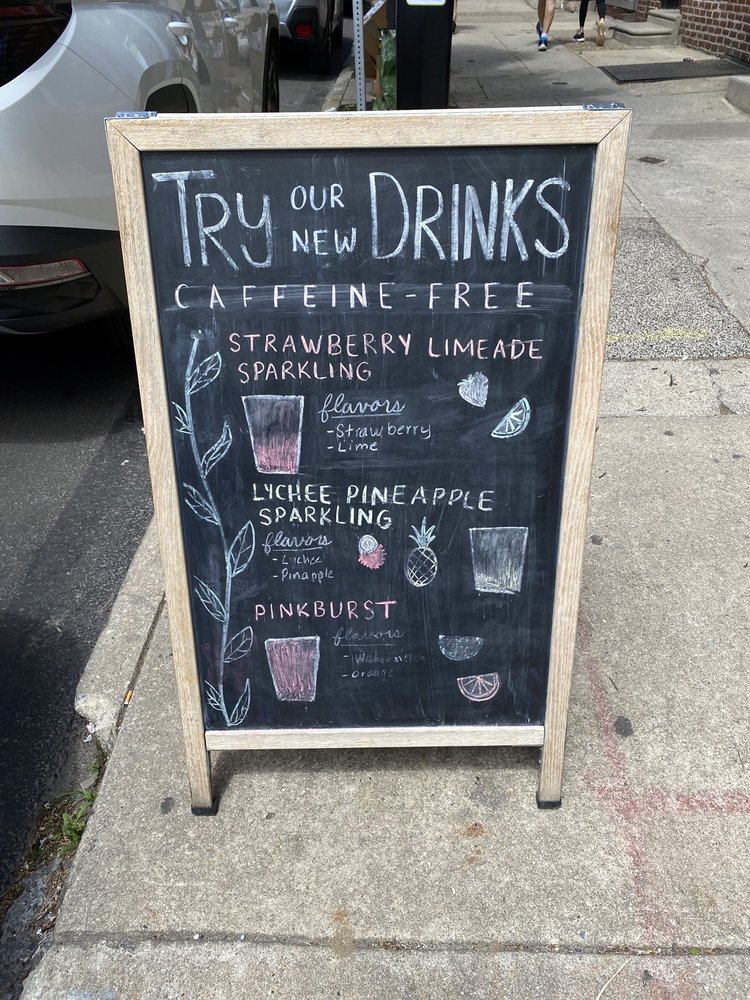 TRY OUR NEW DRINKS
CAFFEINE-FREE
STRAWBERRY LIMEADE
SPARKLING
flavors
-Strawberry
-Lime
LYCHEE PINEAPPLE
SPARKLING
flavors
-Lychee
-Pinapple
PINKBURST
flavors
-Watermelon
-orange